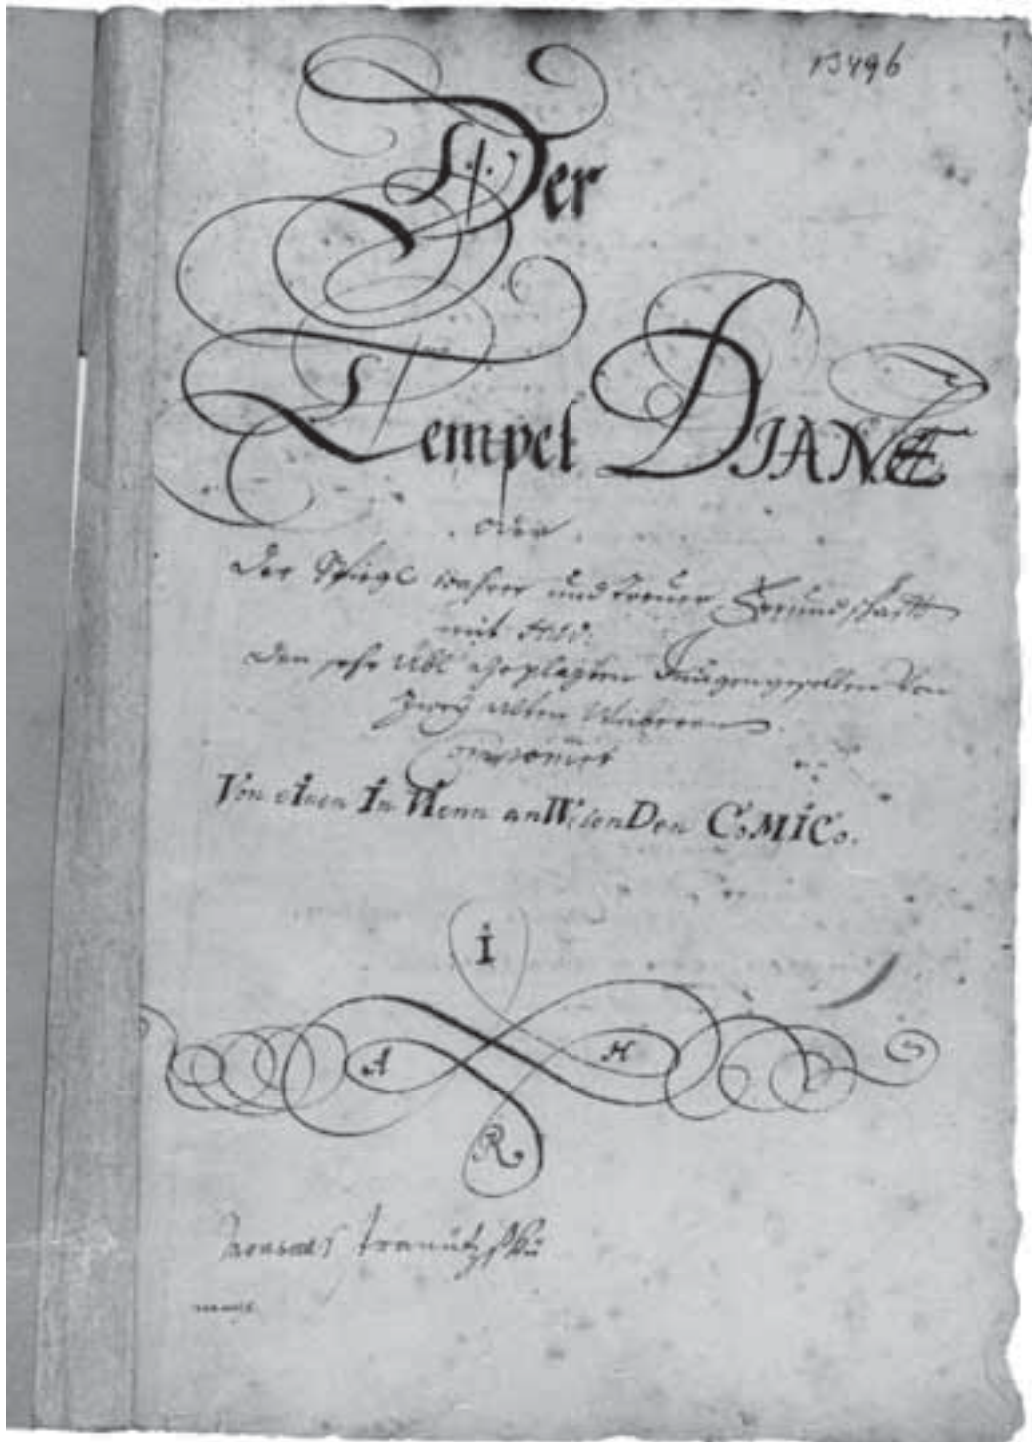 13496
Der
Tempel DIANÆ
oder
Der Spiegl wahrer und treuer Freundschafft
mit HW:
Den sehr übl geplagten Jungengesellen von
zwey alten Weibern
Componiret
Von einen In Wienn anWesenDen CoMiCo.
I
A H
R